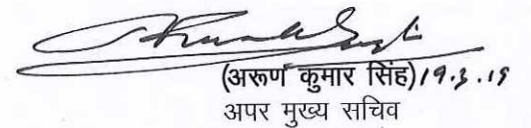 (अरूण कुमार सिंह) 19.3.15
अपर मुख्य सचिव